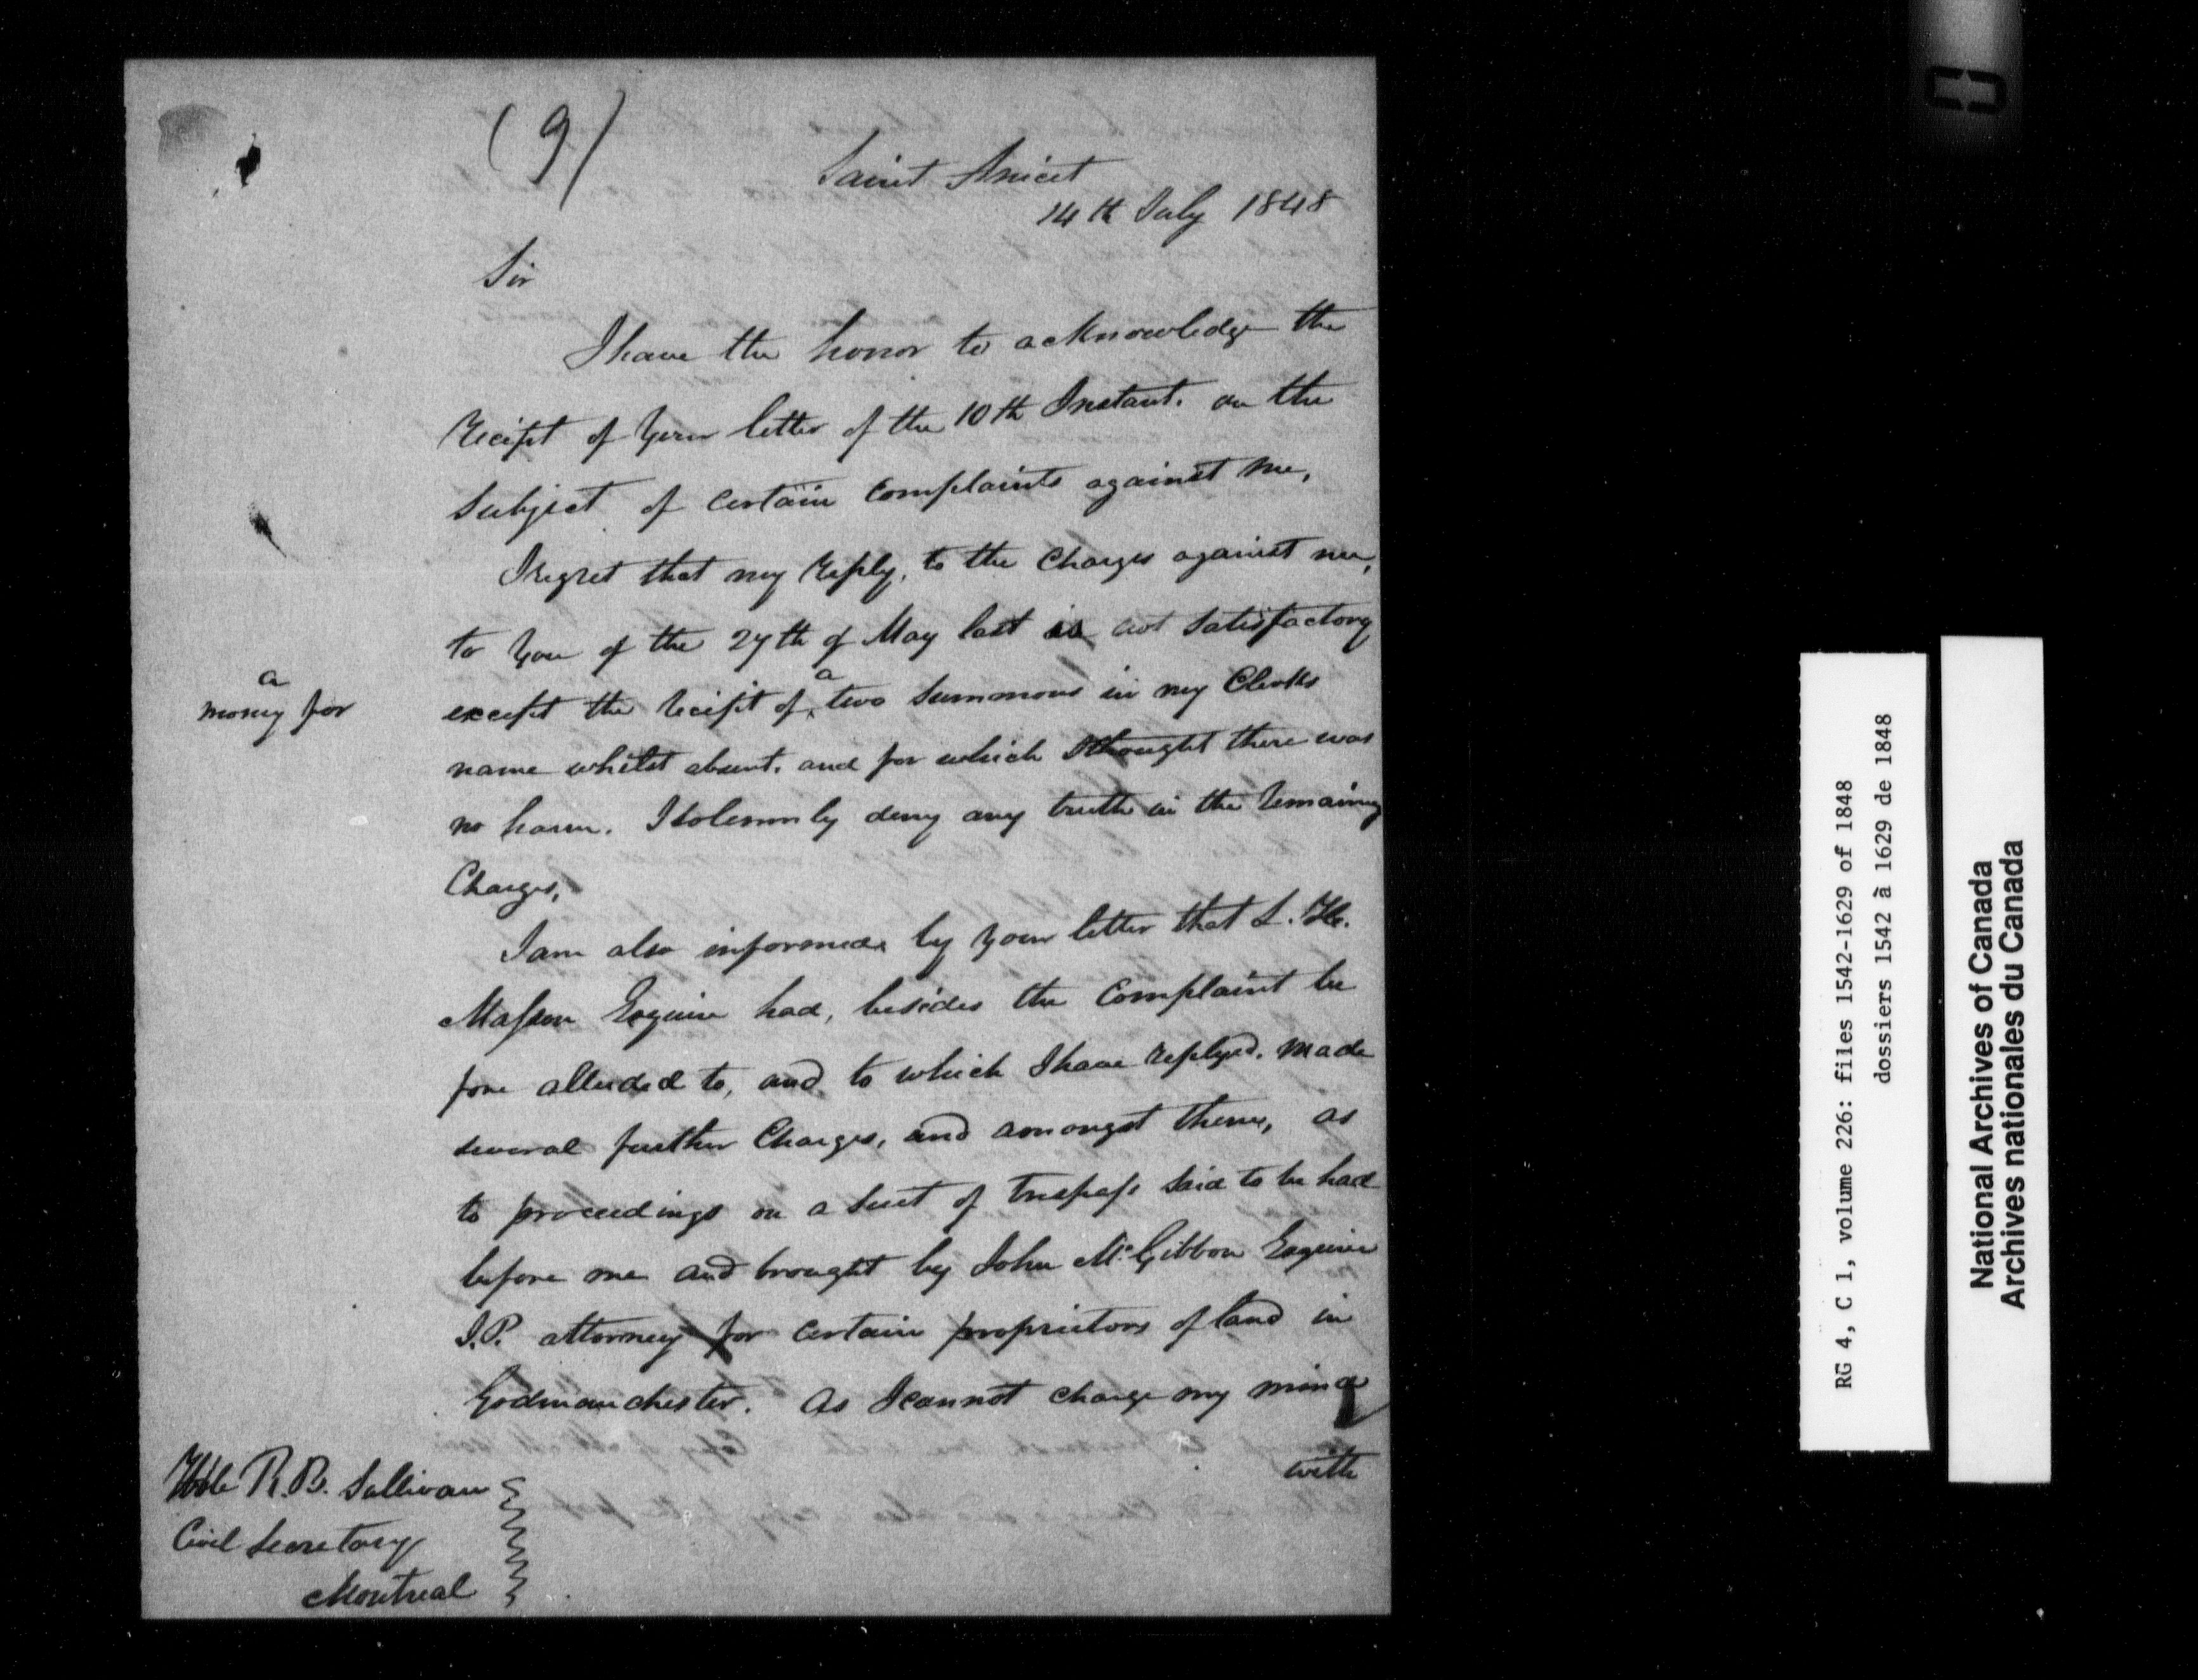 (9)
Saint Anicet
14th July 1848
Sir
I have the honor to acknowledge the
receipt of your letter of the 10th Instant. on the
subject of certain complaints against me,
I regret that my reply, to the Charges against me,
to you of the 27th of May last is not satisfactory
a
except the receipt of ‸ two summons in my Clerks
a
money for
name whilst absent. and for which I thought there was
no harm. I solemnly deny any truth in the remaining
Charges,
I am also informed by your letter that L. H.
Masson Esquire had, besides the Complaint be
fore alluded to, and to which I have replyed. made
several further Charges, and amongst them, as
to proceedings on a suit of trespass said to be had
before me and brought by John McGibbon Esquire
J.P. attorney for certain proprietors of land in
Godmanchester. As I cannot charge my mind
with
Hble R.B. Sullivan
Civil Secretary
Montreal
RG 4, C 1, volume 226: files 1542-1629 of 1848
dossiers 1542 à 1629 de 1848
National Archives of Canada
Archives nationales du Canada